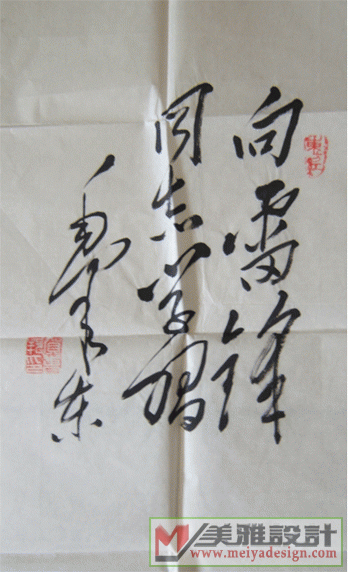 向雷锋
同志学习
毛泽东
美雅設計
www.meiyadesign.com